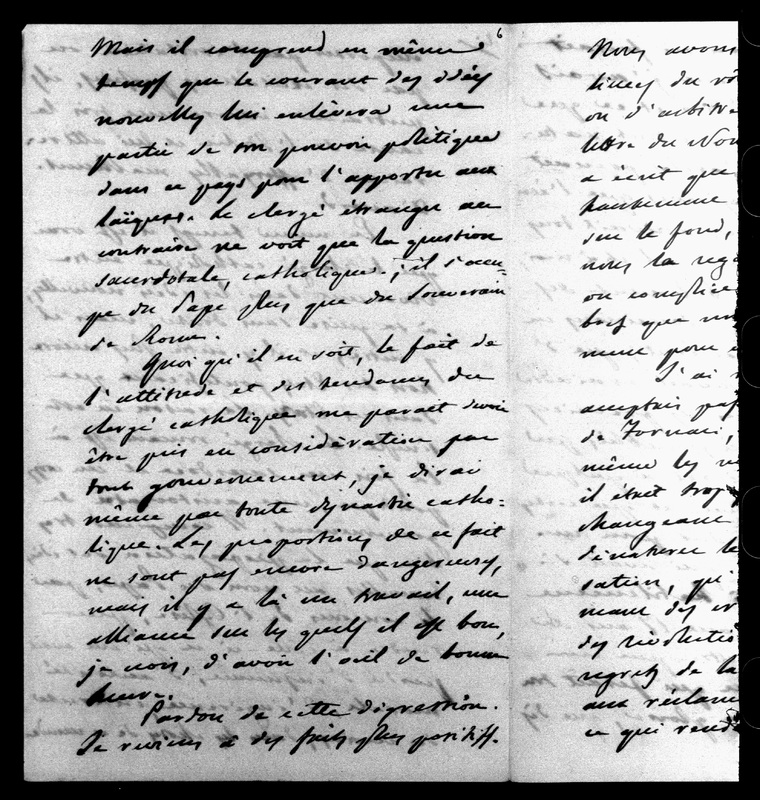 6
Mais il comprend en même
temps que le courant des idées
nouvelles lui enlèvera une
partie de son pouvoir politique
dans ce pays pour l'apporter aux
laïques. Le clergé étranger au
contraire ne voit que la question
sacerdotale, catholique; il s'occu-
pe du Pape plus que du Souverain
de Rome.
Quoi qu'il en soit, le fait de
l'attitude et des tendances du
clergé catholique me parait devoir
être pris en considération par
tout gouvernement, je dirai
même par toute dynastie catho-
lique. Les proportions de ce fait
ne sont pas encore dangereuses,
mais il y a là un travail, une
alliance sur les quels il est bon,
je crois, d'avoir l'œil de bonne
heure.
Pardon de cette digression.
Je reviens à des faits plus positifs.
Nous avons
lines du
ou d'arbitre
lettre du
a écrit que
hautement
sur le fond,
nous la
ou complice
que
ment pour
J'ai
acceptais pas
de Fornari,
même les
il était trop
changeant
dénaturer le
sation, qui
ment des
des révolutio
regrets de la
aux réclam
ce qui rend